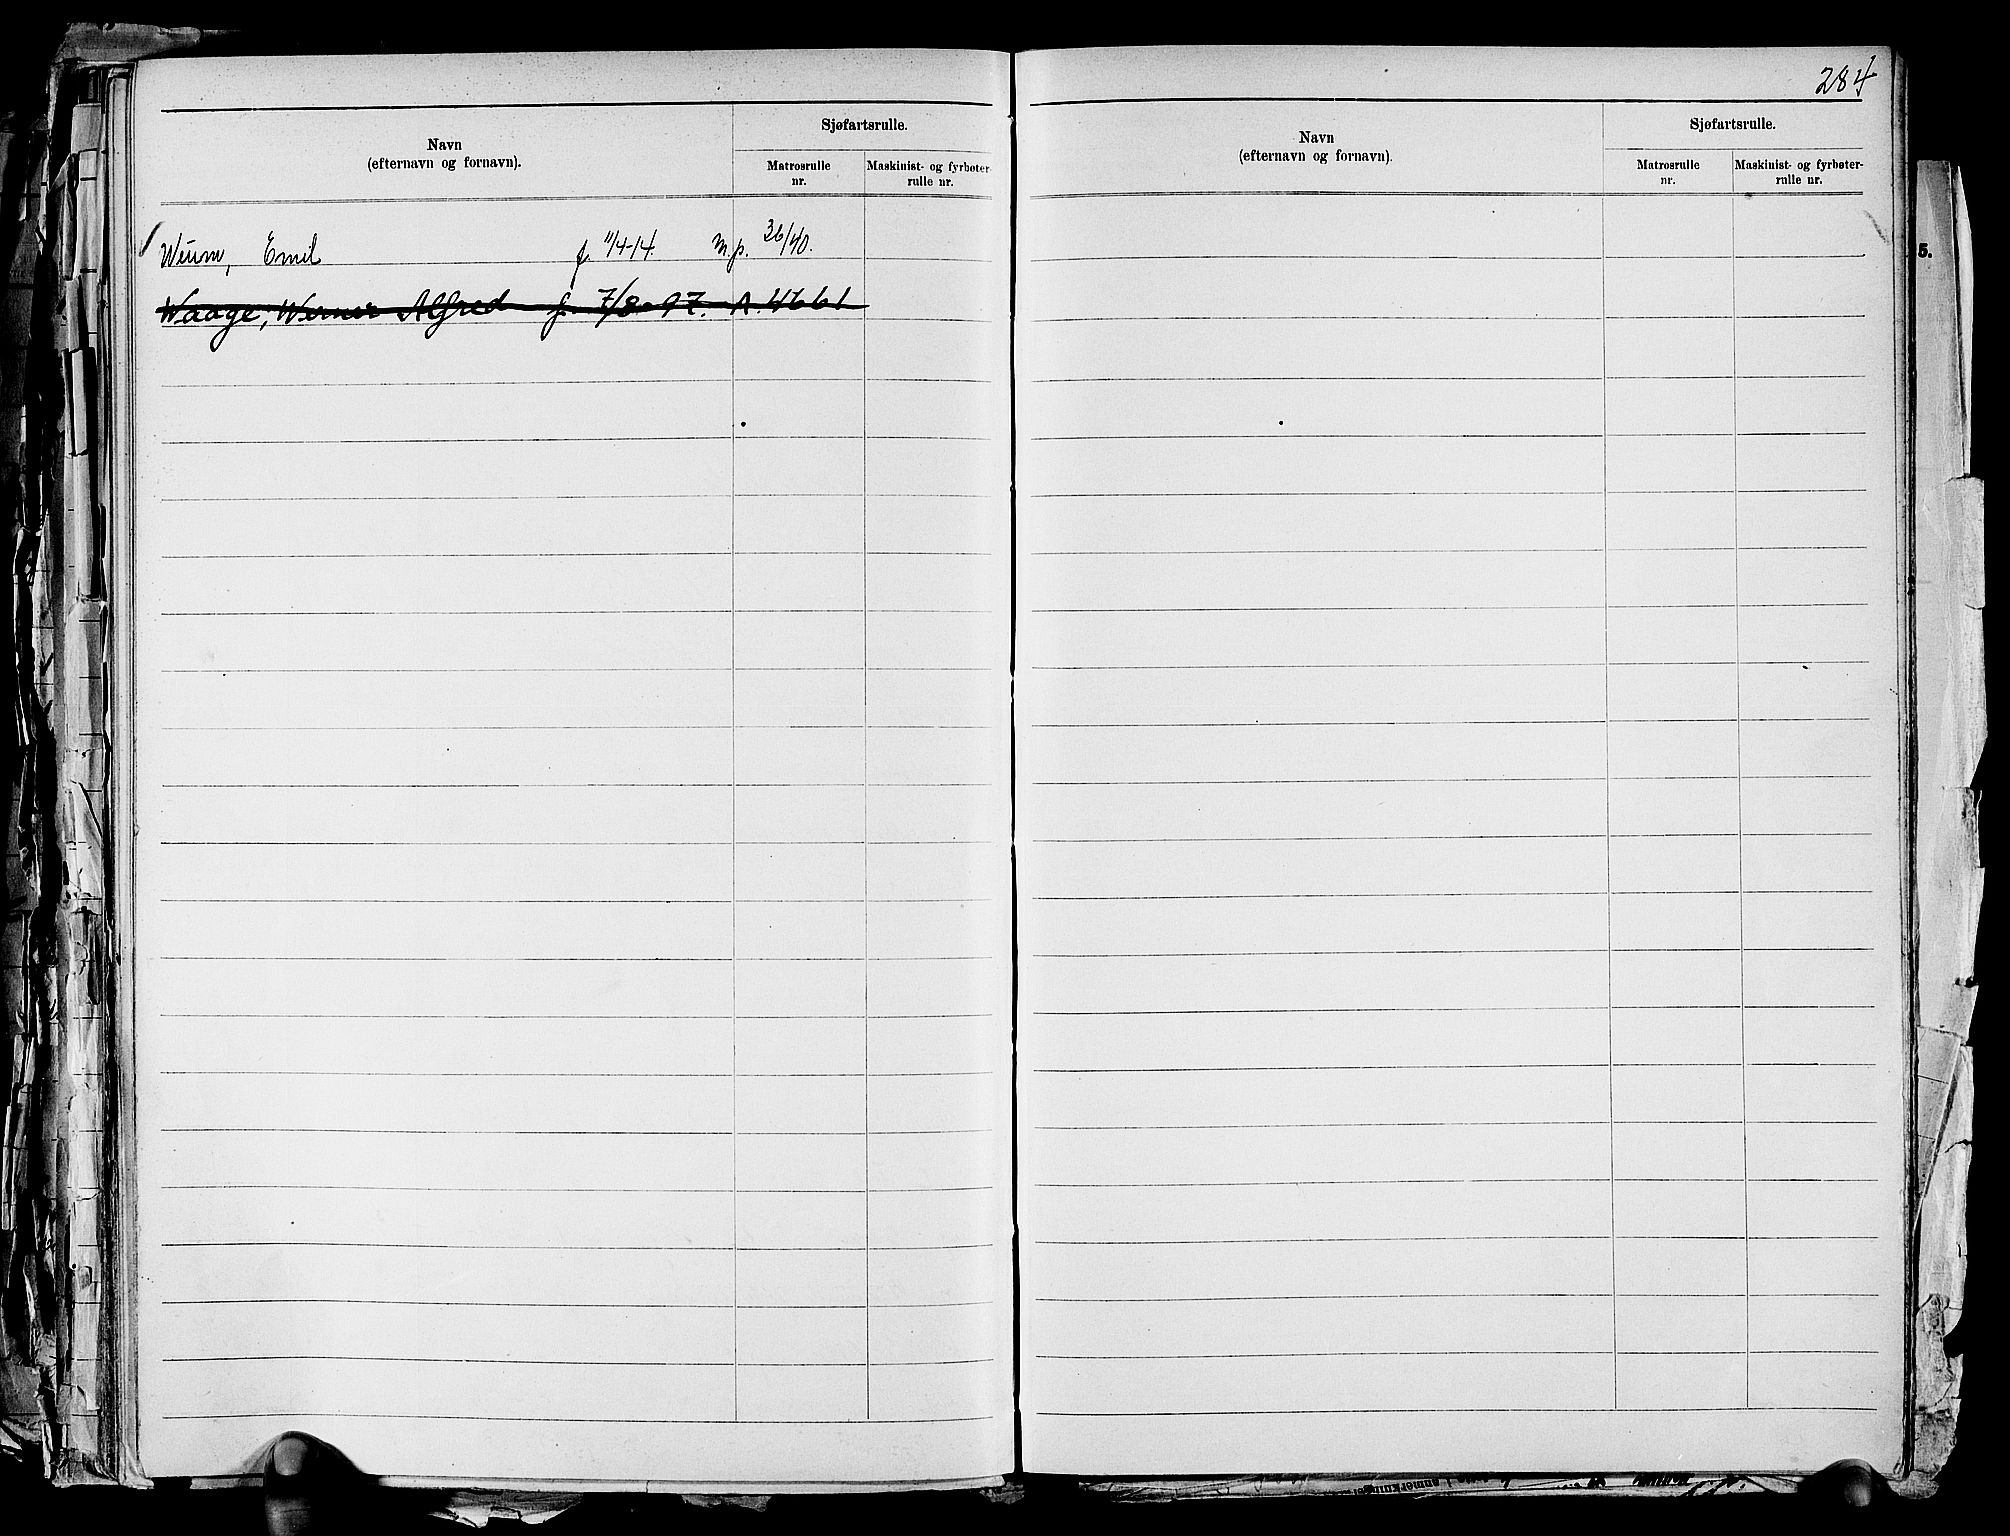 Navn
(efternavn og fornavn).
Sjøfartsrulle.
Matrosrulle
nr.
Maskinist- og fyrbøter-
rulle nr.
Weum, Emil f. 11/4-14. M.p. 36/40.
Waage, Werner Alfred f. 7/8-97. A. 4661
284
Navn
(efternavn og fornavn).
Sjøfartsrulle.
Matrosrulle
nr.
Maskinist- og fyrbøter-
rulle nr.
5.